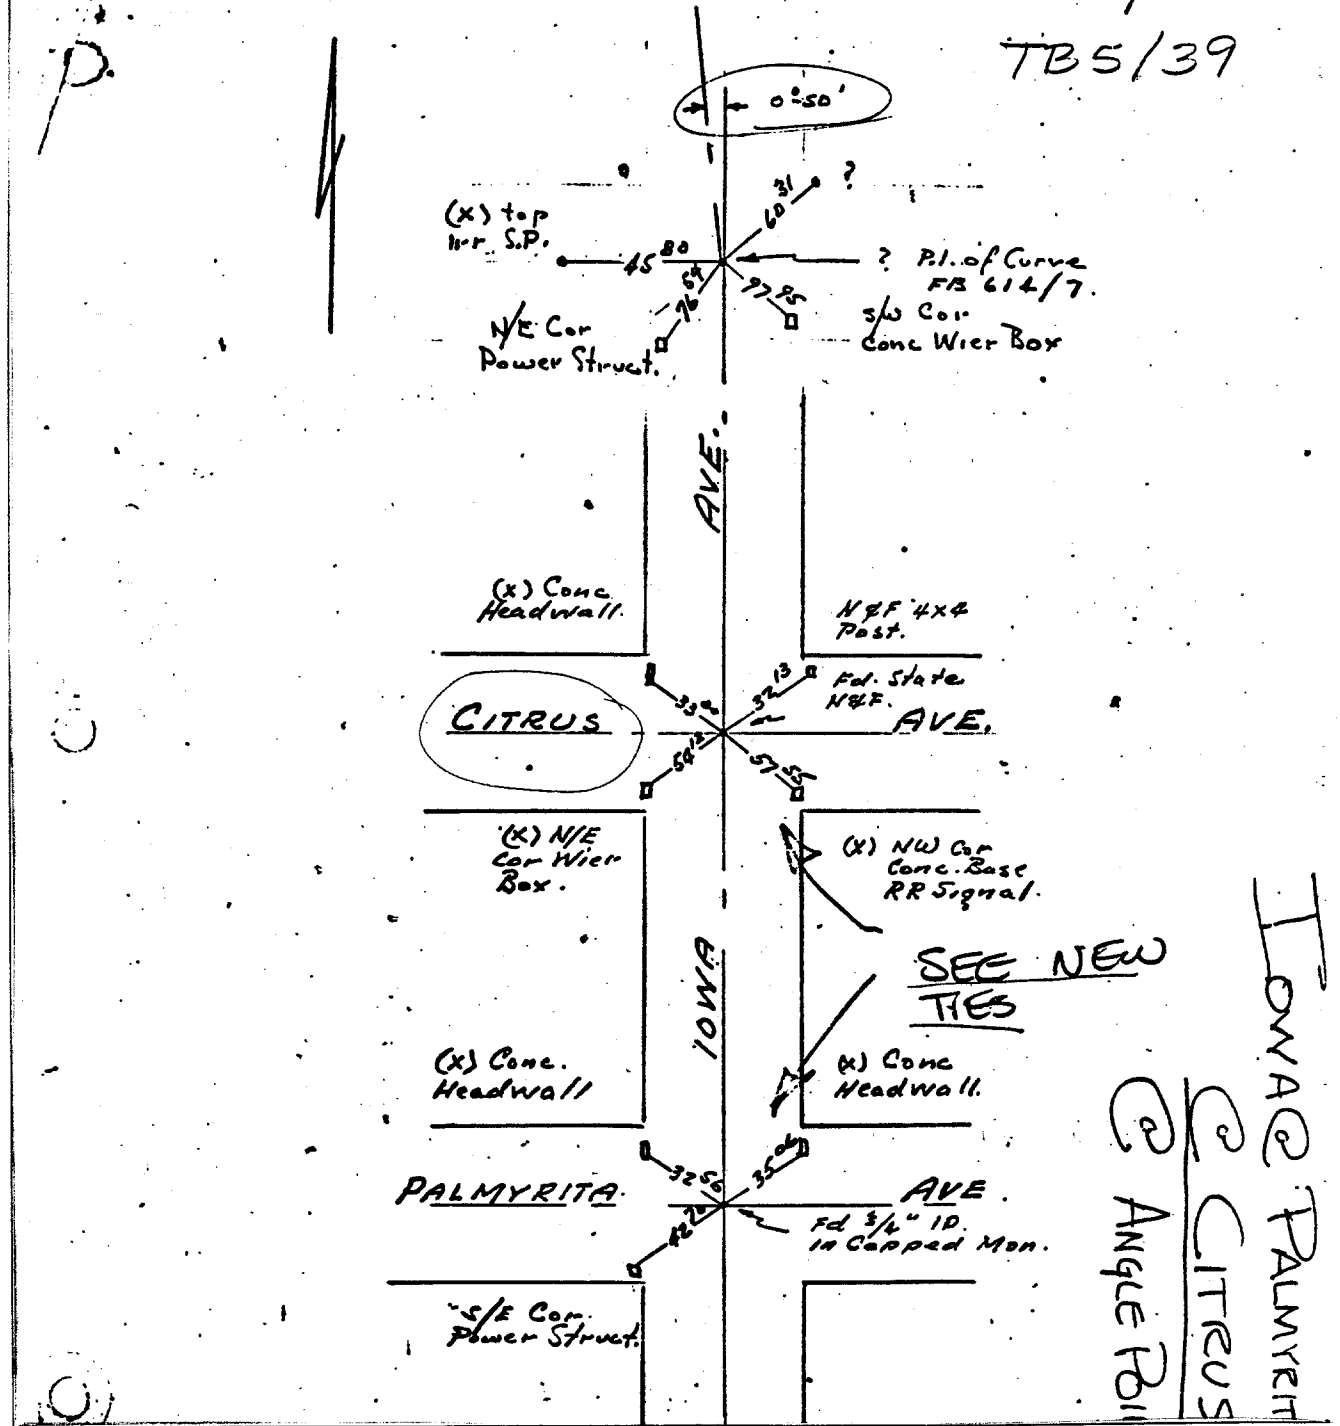 TB5/39
0°-50'
60 31
?
(x) top
S.P.
45 80
76
? P.I. of Curve
FB 614/7.
97 95
N/E Cor
Power Struct.
S/W Cor
Conc Wier Box
AVE.
(x) Conc
Headwall.
N&F 4x4
Post.
Fd. State
N&F.
33
32 13
CITRUS
AVE.
54 12
57 55
(x) N/E
Cor Wier
Box.
(x) NW Cor
Conc. Base
RR Signal.
SEE NEW
TIES
IOWA
(x) Conc.
Headwall
(x) Conc
Headwall.
32 56
35 06
PALMYRITA.
AVE.
Fd 3/4" IP.
in Capped Mon.
S/E Cor.
Power Struct.
IOWA @ PALMYRIT
@ CITRUS
@ ANGLE POI